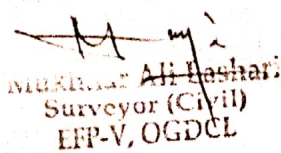 Mukhtiar Ali Lashari
Surveyor (Civil)
EFP-V, OGDCL